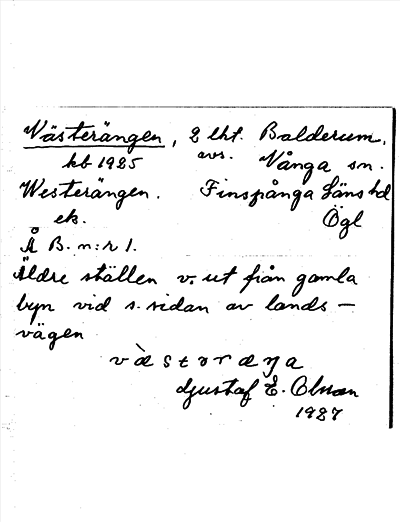 Västerängen, 2 lht. Balderum,
kb 1925 avs. Vånga sn.
Westerängen. Finspånga Läns hd
ek. Ögl
Å B. n:r 1.
Äldre ställen v. ut från gamla
byn vid s. sidan av lands-
vägen
Gustaf E. Olsson
1927